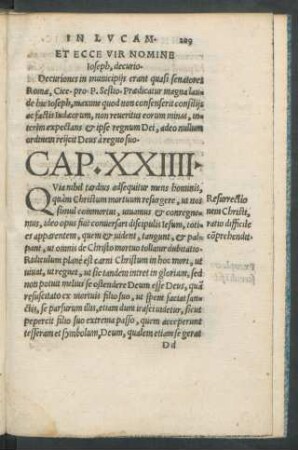 IN LVCAM.
209
ET ECCE VIR NOMINE
Ioseph, decurio.
Decuriones in municipijs erant quasi senatores
Romæ, Cice. pro P. Sestio. Prædicatur magna lau-
de hic Ioseph, maxime quod non consenserit consilijs
ac factis Iudæorum, non reueritus eorum minas, in-
terim expectans & ipse regnum Dei, adeo nullum
ordinem reijcit Deus à regno suo.
CAP. XXIIII.
QVia nihil tardius adsequitur mens hominis,
quàm Christum mortuum resurgere, ut nos
simul commortui, uiuamus & conregne-
mus, ideo opus fuit conuersari discipulis Iesum, toti-
es apparentem, quem & uident, tangunt, & pal-
pant, ut omnis de Christo mortuo tollatur dubitatio.
Ridiculum planè est carni Christum in hoc mori, ut
uiuat, ut regnet, ut sic tandem intret in gloriam, sed
non potuit melius se ostendere Deum esse Deus, quā
resuscitato ex mortuis filio suo, ut spem faciat san-
ctis, se parsurum illis, etiam dum irasci uidetur, sicut
pepercit filio suo extrema passo, quem acceperunt
tesseram et symbolum, Deum, qualem etiam se gerat
Dd
Resurrectio
nem Christi,
ratio difficile
cōprehendit.